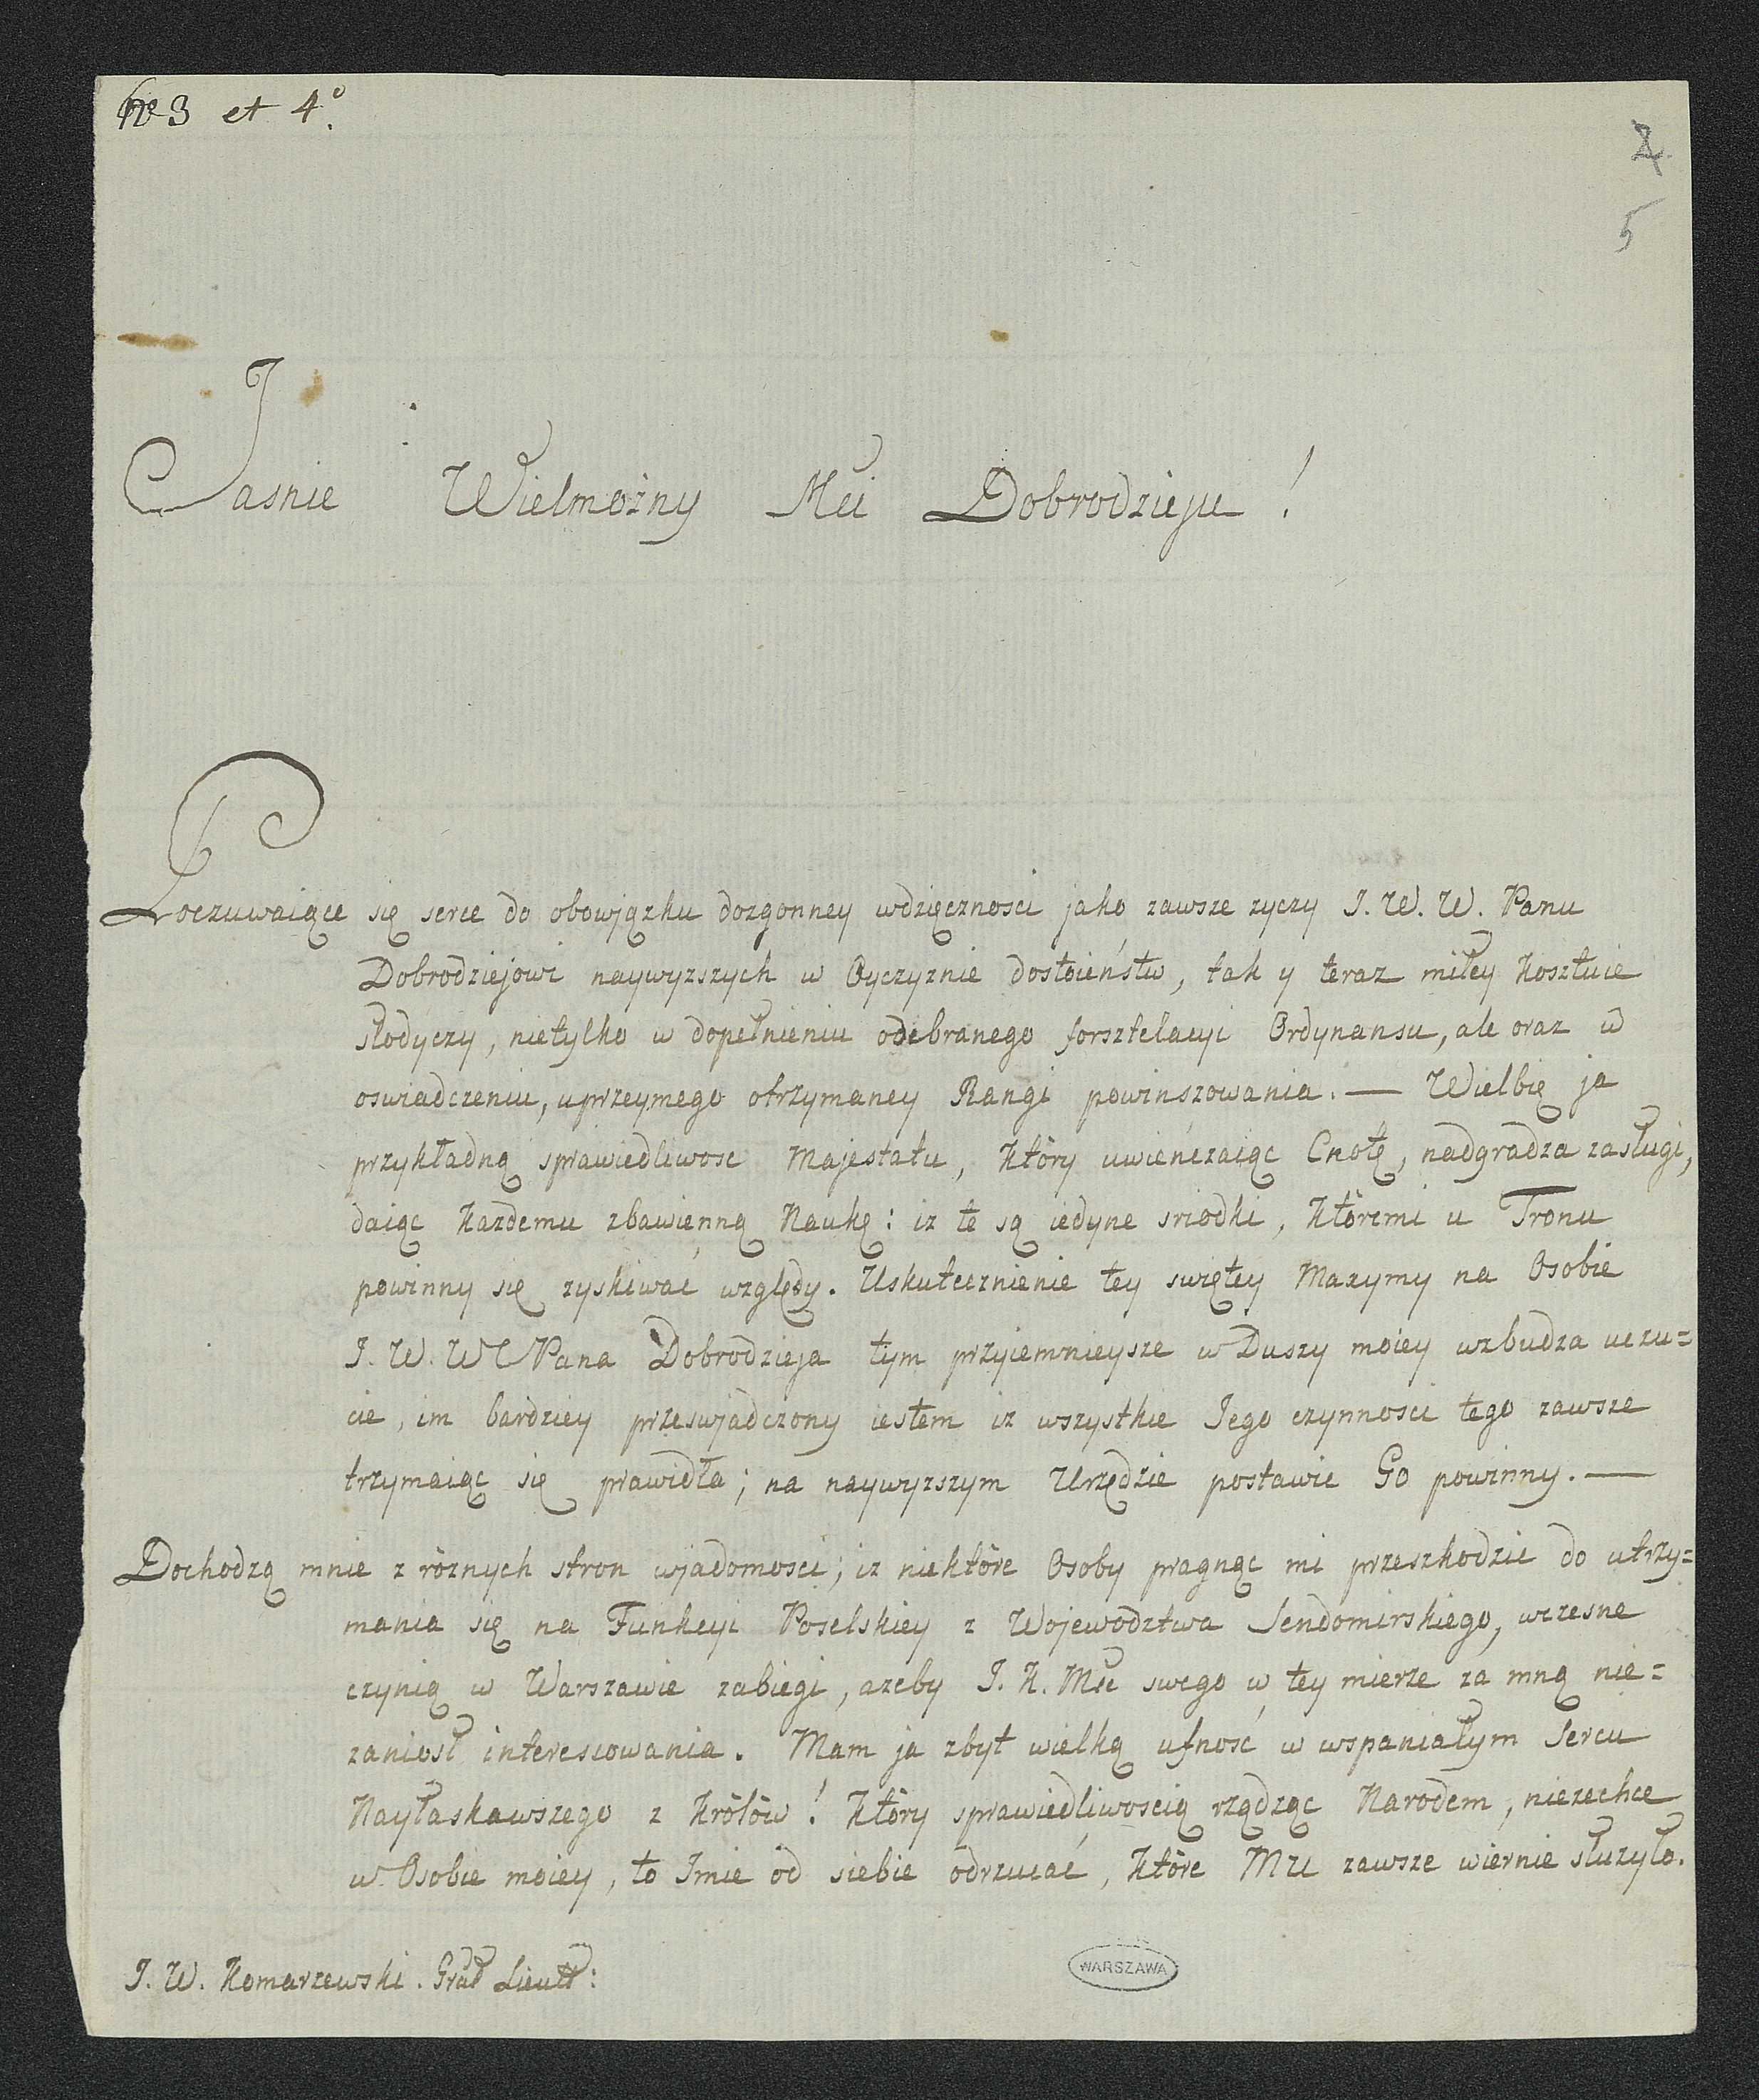 3 et 4°.
2
5
Jasnie Wielmożny Mci Dobrodzieju!
Poczuwaiące się serce do obowjązku dozgonney wdzięcznosci jako zawsze zyczy J. W. W. Panu
Dobrodziejowi naywyzszych w Oyczyznie dostoieństw, tak y teraz miłey kosztuie
słodyczy, nietylko w dopełnieniu odebranego forsztelacyi Ordynansu, ale oraz w
oswiadczeniu, uprzeymego otrzymaney Rangi powinszowania. — Wielbię ja
przykładną sprawiedliwosc Majestatu, który uwienczaiąc Cnotę, nadgradza zasługi,
daiąc kazdemu zbawienną Naukę: iz te są iedyne srzodki, któremi u Tronu
powinny się zyskiwać względy. Uskutecznienie tey swiętey Maxymy na Osobie
J. W. W Pana Dobrodzieja tym przyiemnieysze w Duszy moiey wzbudza uczu=
cie, im bardziey przeswjadczony iestem iz wszystkie Jego czynnosci tego zawsze
trzymaiąc się prawidła; na naywyzszym Urzędzie postawic Go powinny. —
Dochodzą mnie z róznych stron wjadomosci; iz niektóre Osoby pragnąc mi przeszkodzic do utrzy=
mania się na Funkcyi Poselskiey z Wojewodztwa Sendomirskiego, wczesne
czynią w Warszawie zabiegi, azeby J. K. Mć swego w tey mierze za mną nie=
zaniosł interesowania. Mam ja zbyt wielką ufność w wspaniałym Sercu
Nayłaskawszego z Królów! który sprawiedliwoscią rządząc Narodem, niezechce
w Osobie moiey, to Imie od siebie odrzucać, które Mu zawsze wiernie słuzyło.
J. W. Komarzewski. Grał Lieutt:
WARSZAWA